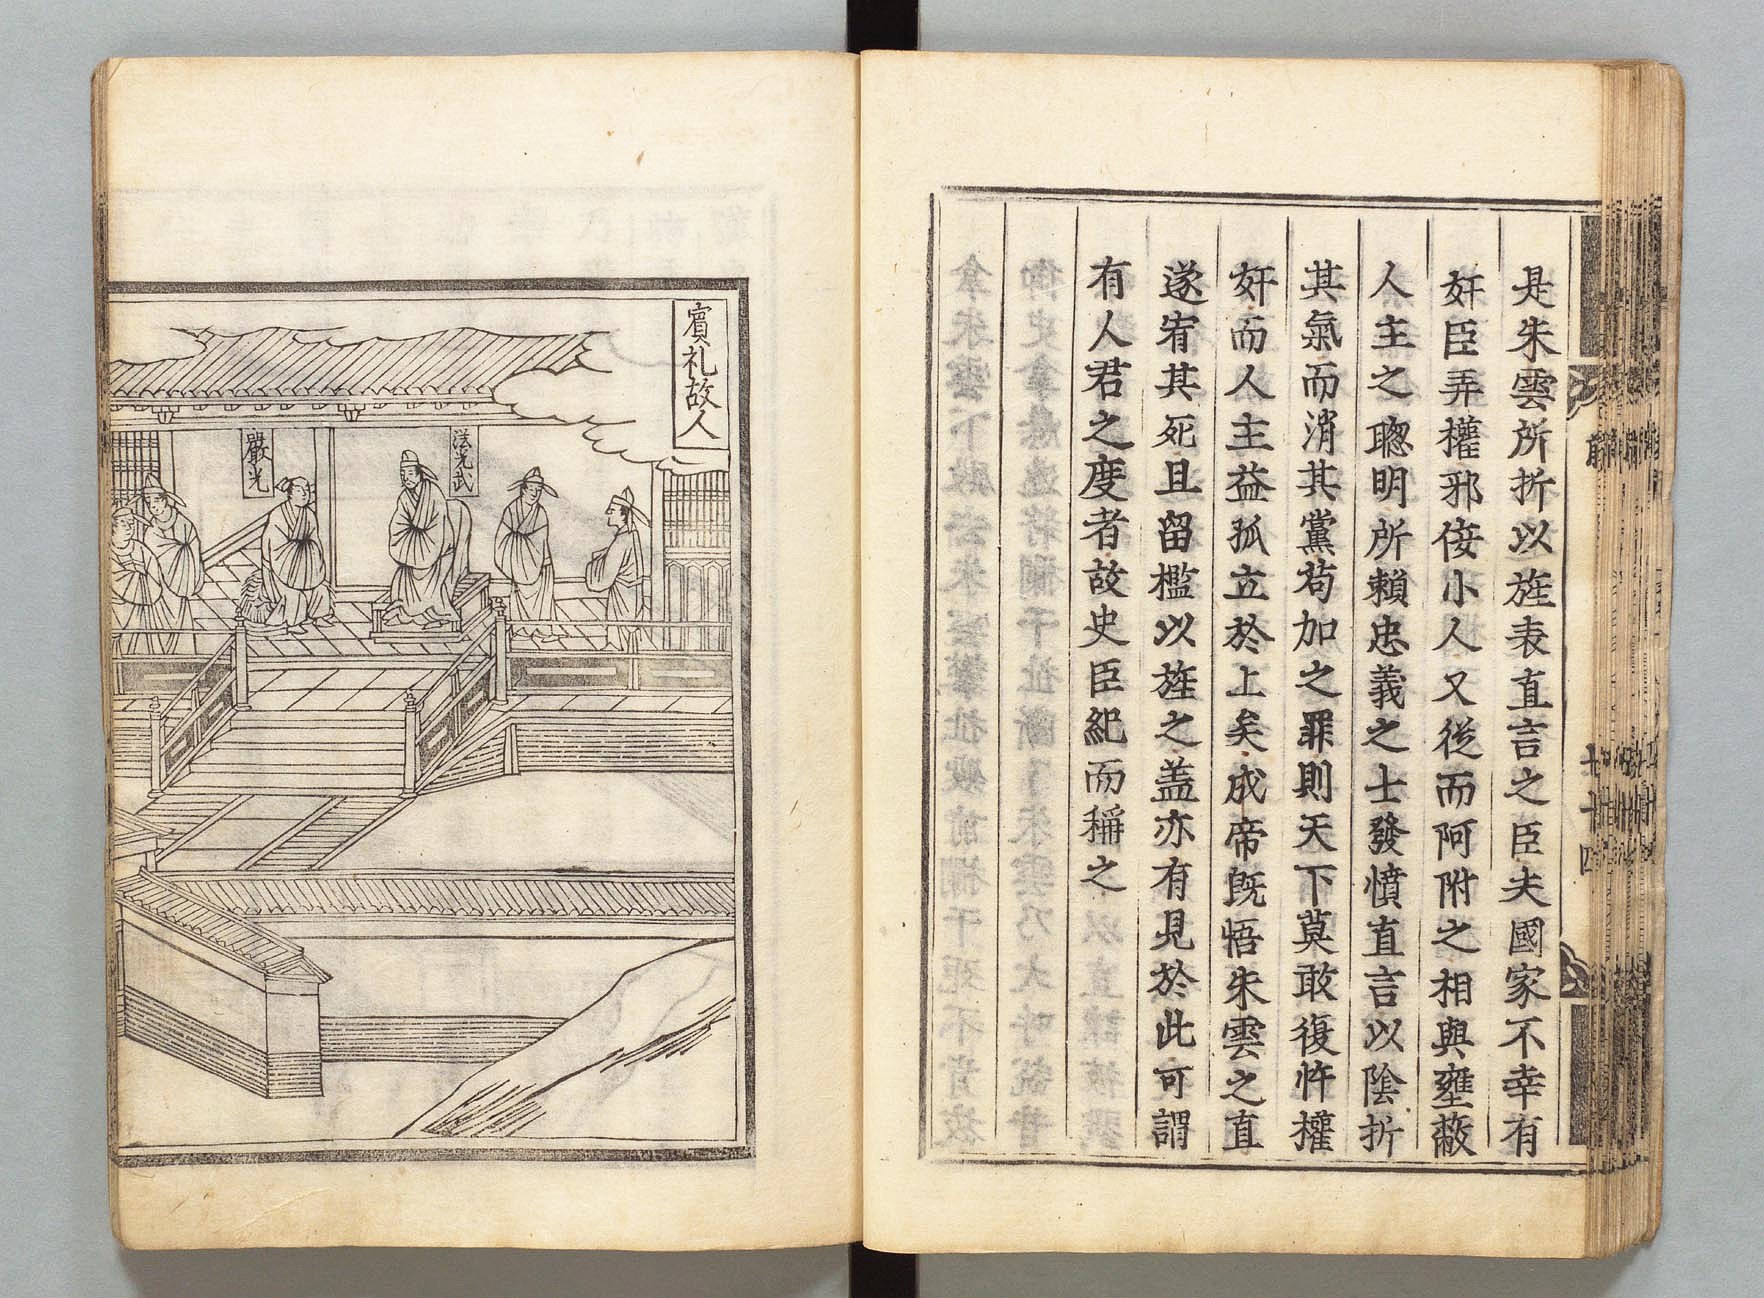 是朱雲所折以旌表直言之臣夫國家不幸有
奸臣弄權邪佞小人又從而阿附之相與壅蔽
人主之聦明所賴忠義之士發憤直言以陰折
其氣而消其黨苟加之罪則天下莫敢復忤權
奸而人主益孤立於上矣成帝旣悟朱雲之直
遂宥其死且留檻以旌之盖亦有見於此可謂
有人君之度者故史臣紀而稱之
賔礼故人
漢光武
嚴光